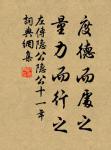 度德而處之
量力而行之
左傳隱公隱公十一年
詞典網集